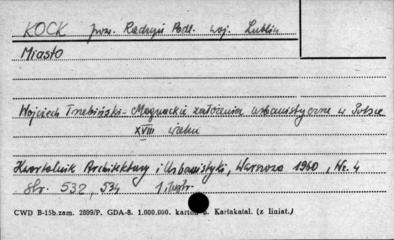 KOCK pow. Radzyń Podl. woj. Lublin
Miasto
Wojciech Trzebiński - Magnackie założenia urbanistyczne w Polsce
XVIII wieku
Kwartalnik Architektury i Urbanistyki, Warszawa 1960, Nr. 4
Str. 532, 534 1 ilustr.
CWD B-15b.zam. 2899/P. GDA-8. 1.000.000. karton Kartakatal. (z liniat.)